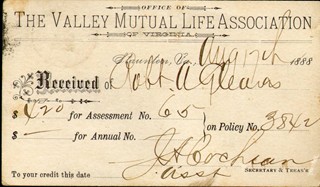 OFFICE OF
THE VALLEY MUTUAL LIFE ASSOCIATION
OF VIRGINIA.
Staunton, Va., Aug 17th 1888
Received of Robt A Gleaves
$4.20 for Assessment No. 65
$ — for Annual No. on Policy No. 3842
J H Cochran
SECRETARY & TREAS'R
asst
To your credit this date